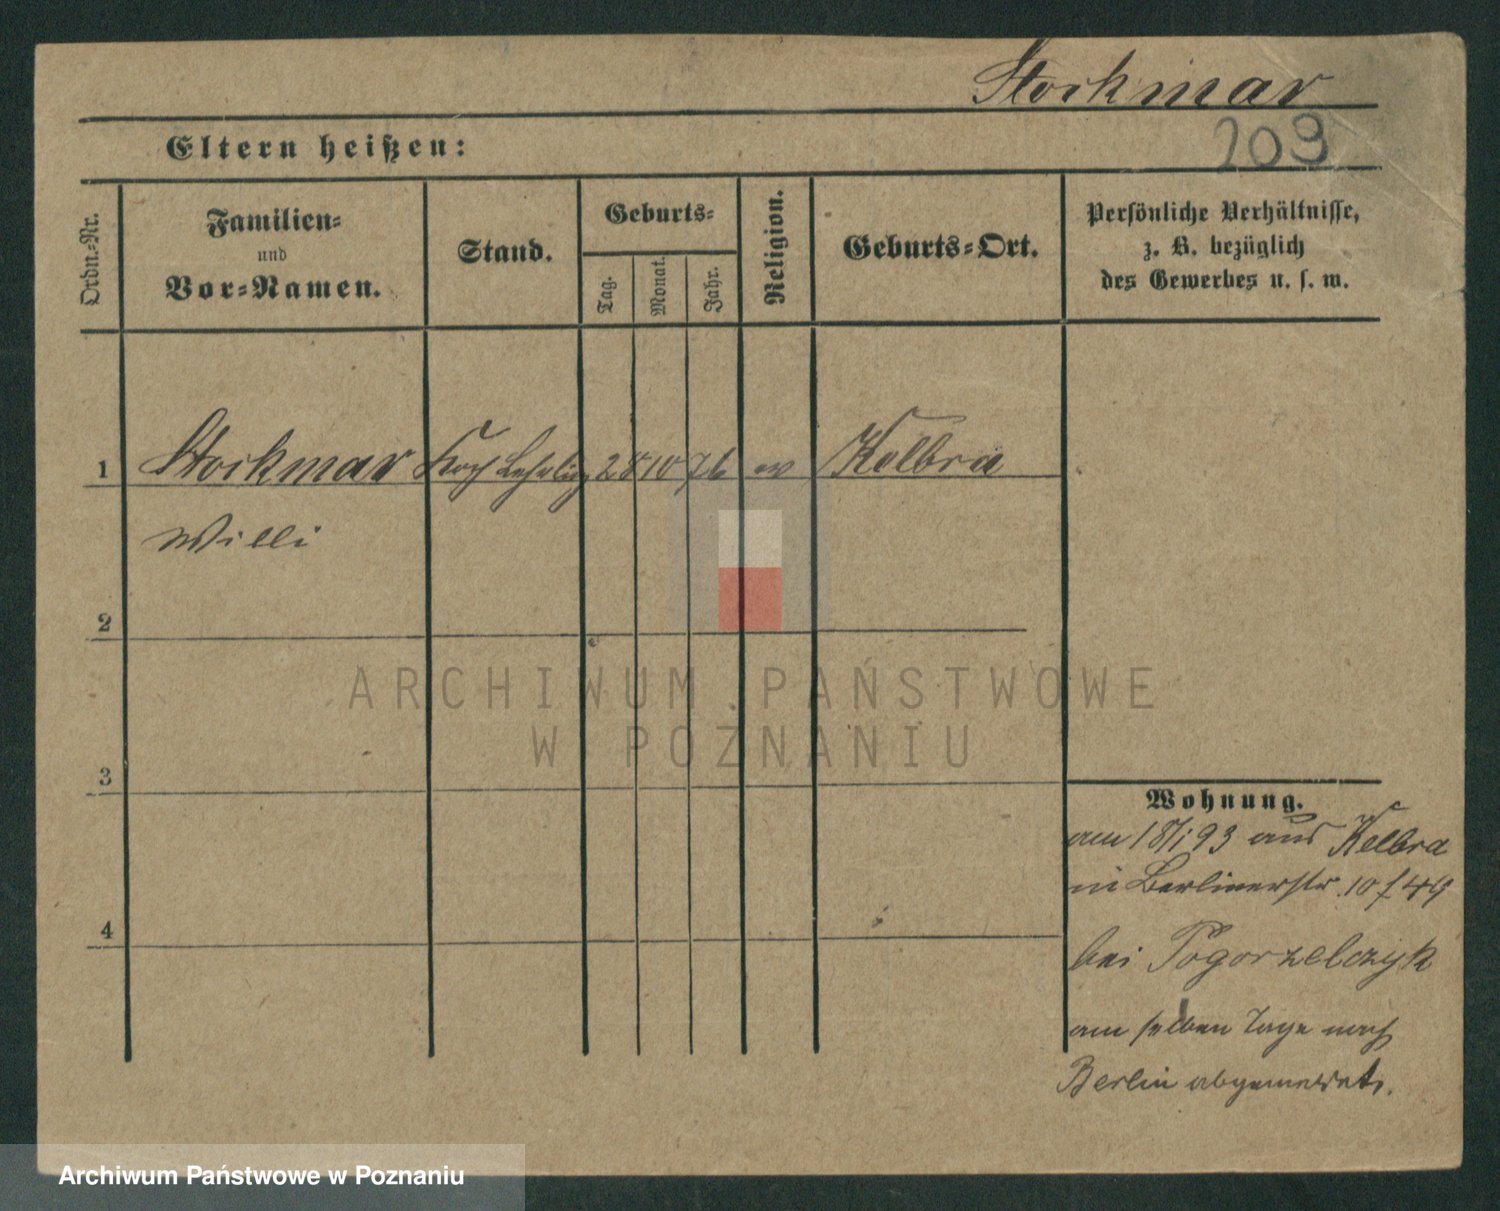 Stockmar
209
Eltern heißen:
Ordn.-Nr.
Familien-
und
Vor-Namen.
Stand.
Geburts-
Tag.
Monat.
Jahr.
Religion.
Geburts-Ort.
Persönliche Verhältnisse,
z. B. bezüglich
des Gewerbes u. s. w.
1 Stockmar Koch Lehrling 28 10 76 ev Kelbra
Willi
2
3
4
ARCHIWUM PAŃSTWOWE
W POZNANIU
Wohnung.
am 18/1 93 aus Kelbra
in Berlinerstr. 10
bei Pogorzelczyk
am selben Tage nach
Berlin abgemeldet.
Archiwum Państwowe w Poznaniu